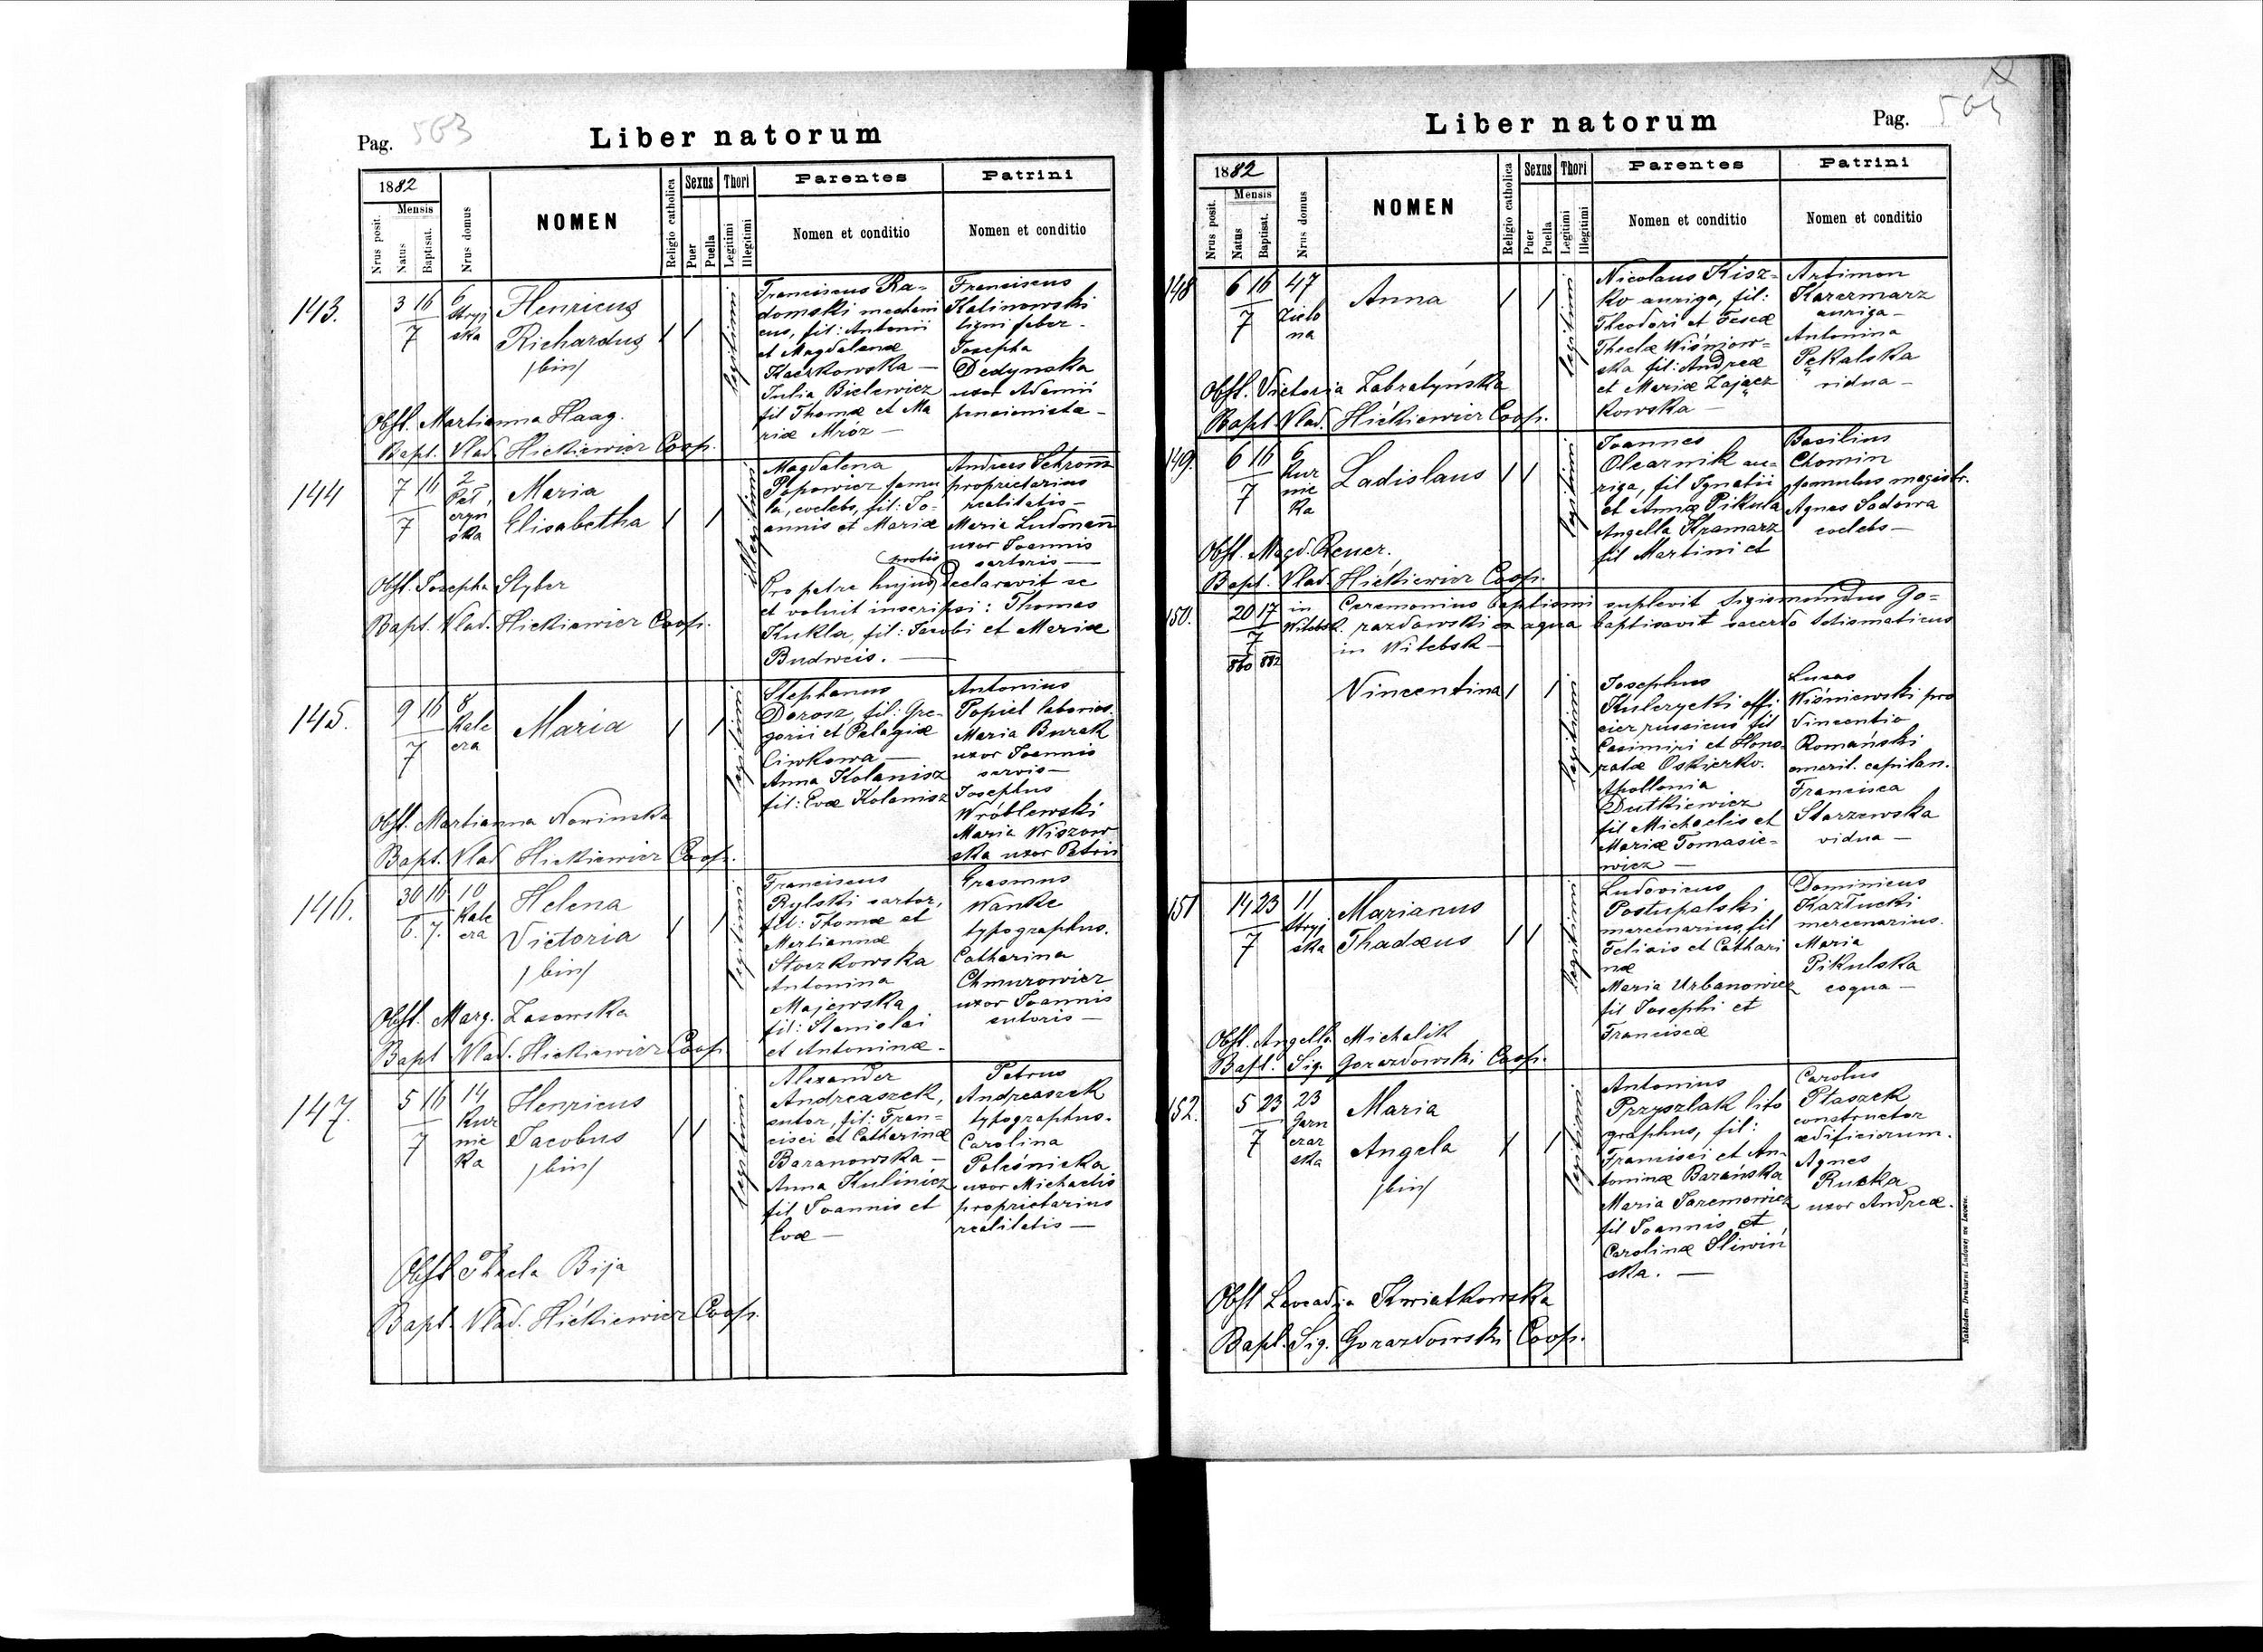 Pag. 503
Liber natorum
1882
Mensis
Nrus posit.
Natus
Baptisat.
Nrus domus
NOMEN
Religio catholica
Sexus
Puer
Puella
Thori
Legitimi
Illegitimi
Parentes
Nomen et conditio
Patrini
Nomen et conditio
143.
3 16
7
6
Stryj
ska
Henricus
Richardus
/bin/
legitimi
Franciscus Ra-
domski mechani
cus, fil: Antonii
et Magdalenæ
Kaczkowska —
Julia Bielewicz
fil Thomæ et Ma
riæ Mróz —
Franciscus
Kalinowski
ligni faber -
Josepha
Dedynska
uxor Adamii
pensionista -
Obst. Martianna Haag.
Bapt. Vlad. Hickiewicz Coop.
144
7 16
7
2
Peł
czyn
ska
Maria
Elisabetha
illegitimi
Magdalena
Popowicz famu
la, coelebs, fil: Jo-
annis et Mariæ
Andreas Schramm
proprietarius
realitatis —
Maria Ludmann
uxor Joannis
sartoris —
Pro patre hujus prolis declaravit se
et voluit inscripsi: Thomas
Kukla, fil: Jacobi et Mariæ
Budweis. —
Obst. Josepha Styber
Bapt. Vlad. Hickiewicz Coop.
145.
9 16
7
8
Kale
cza
Maria
legitimi
Stephanus
Dorosz, fil: Gre-
gorii et Pelagiæ
Ciwkowa —
Anna Kolanisz
fil: Evæ Kolanisz
Antonius
Popiel laborios.
Maria Burak
uxor Joannis
servis —
Josephus
Wróblewski
Maria Wiszow
ska uxor Petri
Obst. Martianna Nowinska
Bapt. Vlad Hickiewicz Coop.
146.
30 16
6. 7.
10
Kale
cza
Helena
Victoria
/bin/
legitimi
Franciscus
Rylski sartor,
fil: Thomæ et
Martiannæ
Stoczkowska
Antonina
Majewska
fil: Stanislai
et Antoninæ -
Erasmus
Wanke
typographus.
Catharina
Chmurowicz
uxor Joannis
sutoris —
Obst. Marg. Zasowska
Bapt Vlad. Hickiewicz Coop
147.
5 16
7
14
Kur
nic
ka
Henricus
Jacobus
/bin/
legitimi
Alexander
Andreaszek,
sutor, fil: Fran-
cisci et Catharinæ
Baranowska —
Anna Kulinicz
fil Joannis et
Evæ —
Petrus
Andreaszek
typographus.
Carolina
Poleśnicka
uxor Michaelis
proprietarius
realitatis —
Obst Thecla Bija
Bapt. Vlad. Hickiewicz Coop.
Liber natorum
Pag.
1882
Mensis
Nrus posit.
Natus
Baptisat.
Nrus domus
NOMEN
Religio catholica
Sexus
Puer
Puella
Thori
Legitimi
Illegitimi
Parentes
Nomen et conditio
Patrini
Nomen et conditio
148
6 16
7
47
Zielo
na
Anna
legitimi
Nicolaus Kisz-
ko auriga, fil:
Theodori et Tescæ
Theclæ Wiśniow-
ska fil: Andreæ
et Mariæ Zając
kowska —
Artimon
Karczmarz
auriga —
Antonina
Pękalska
vidua —
Obst. Victoria Zabratyńska
Bapt Vlad. Hickiewicz Coop.
149.
6 16
7
6
Kur
nic
ka
Ladislaus
legitimi
Joannes
Olearnik au-
riga, fil Ignatii
et Annæ Pikula
Angella Kramarz
fil Martini et
Basilius
Chomin
famulus magistr.
Agnes Sadowa
coelebs —
Obst. Magd. Reuer.
Bapt. Vlad. Hickiewicz Coop.
150.
20 17
7
860 882
in
Witebsk.
Ceremonius baptismi suplevit Sigismundus Go-
razdowski ex aqua baptisavit sacerdo scismaticus
in Witebsk —
Vincentina
legitimi
Josephus
Kulczycki offi-
cier russicus fil
Casimiri et Hono-
ratæ Oskierko.
Apollonia
Dutkiewicz
fil Michaelis et
Mariæ Tomasie-
wicz —
Lucas
Wiśniewski pro
Vincentio
Romański
emerit. capitan.
Francisca
Starzewska
vidua —
151
14 23
7
11
Stryj
ska
Marianus
Thadæus
legitimi
Ludovicus
Postupalski
mercenarius, fil
Felicis et Cathari
næ
Maria Urbanowicz
fil Josephi et
Franciscæ
Dominicus
Kazłucki
mercenarius.
Maria
Pikulska
coqua —
Obst. Angella Michalik
Bapt. Sig. Gorazdowski Coop.
152.
5 23
7
23
Garn
czar
ska
Maria
Angela
/bin/
legitimi
Antonius
Przyszlak lito
graphus, fil:
Francisci et An-
toninæ Barańska
Maria Jaremowicz
fil Joannis et
Carolinæ Sliwiń
ska. —
Carolus
Ptaszek
constructor
ædificiorum.
Agnes
Rucka
uxor Andreæ.
Obst Leocadja Kwiatkowska
Bapt. Sig. Gorazdowski Coop.
Nakładem Drukarni Ludowej we Lwowie.